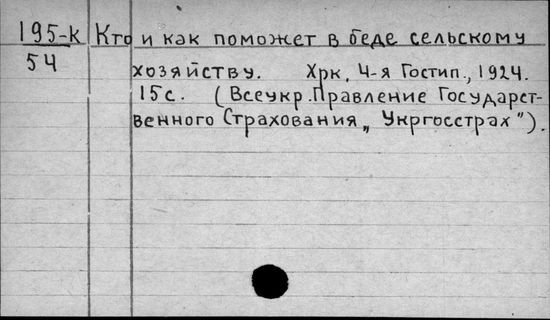 195-к Кто и как поможет в беде сельскому
54
хозяйству. Хрк, 4-я Гостип., 1924.
15с. (Всеукр. Правление Государст-
венного Страхования „Укргосстрах").